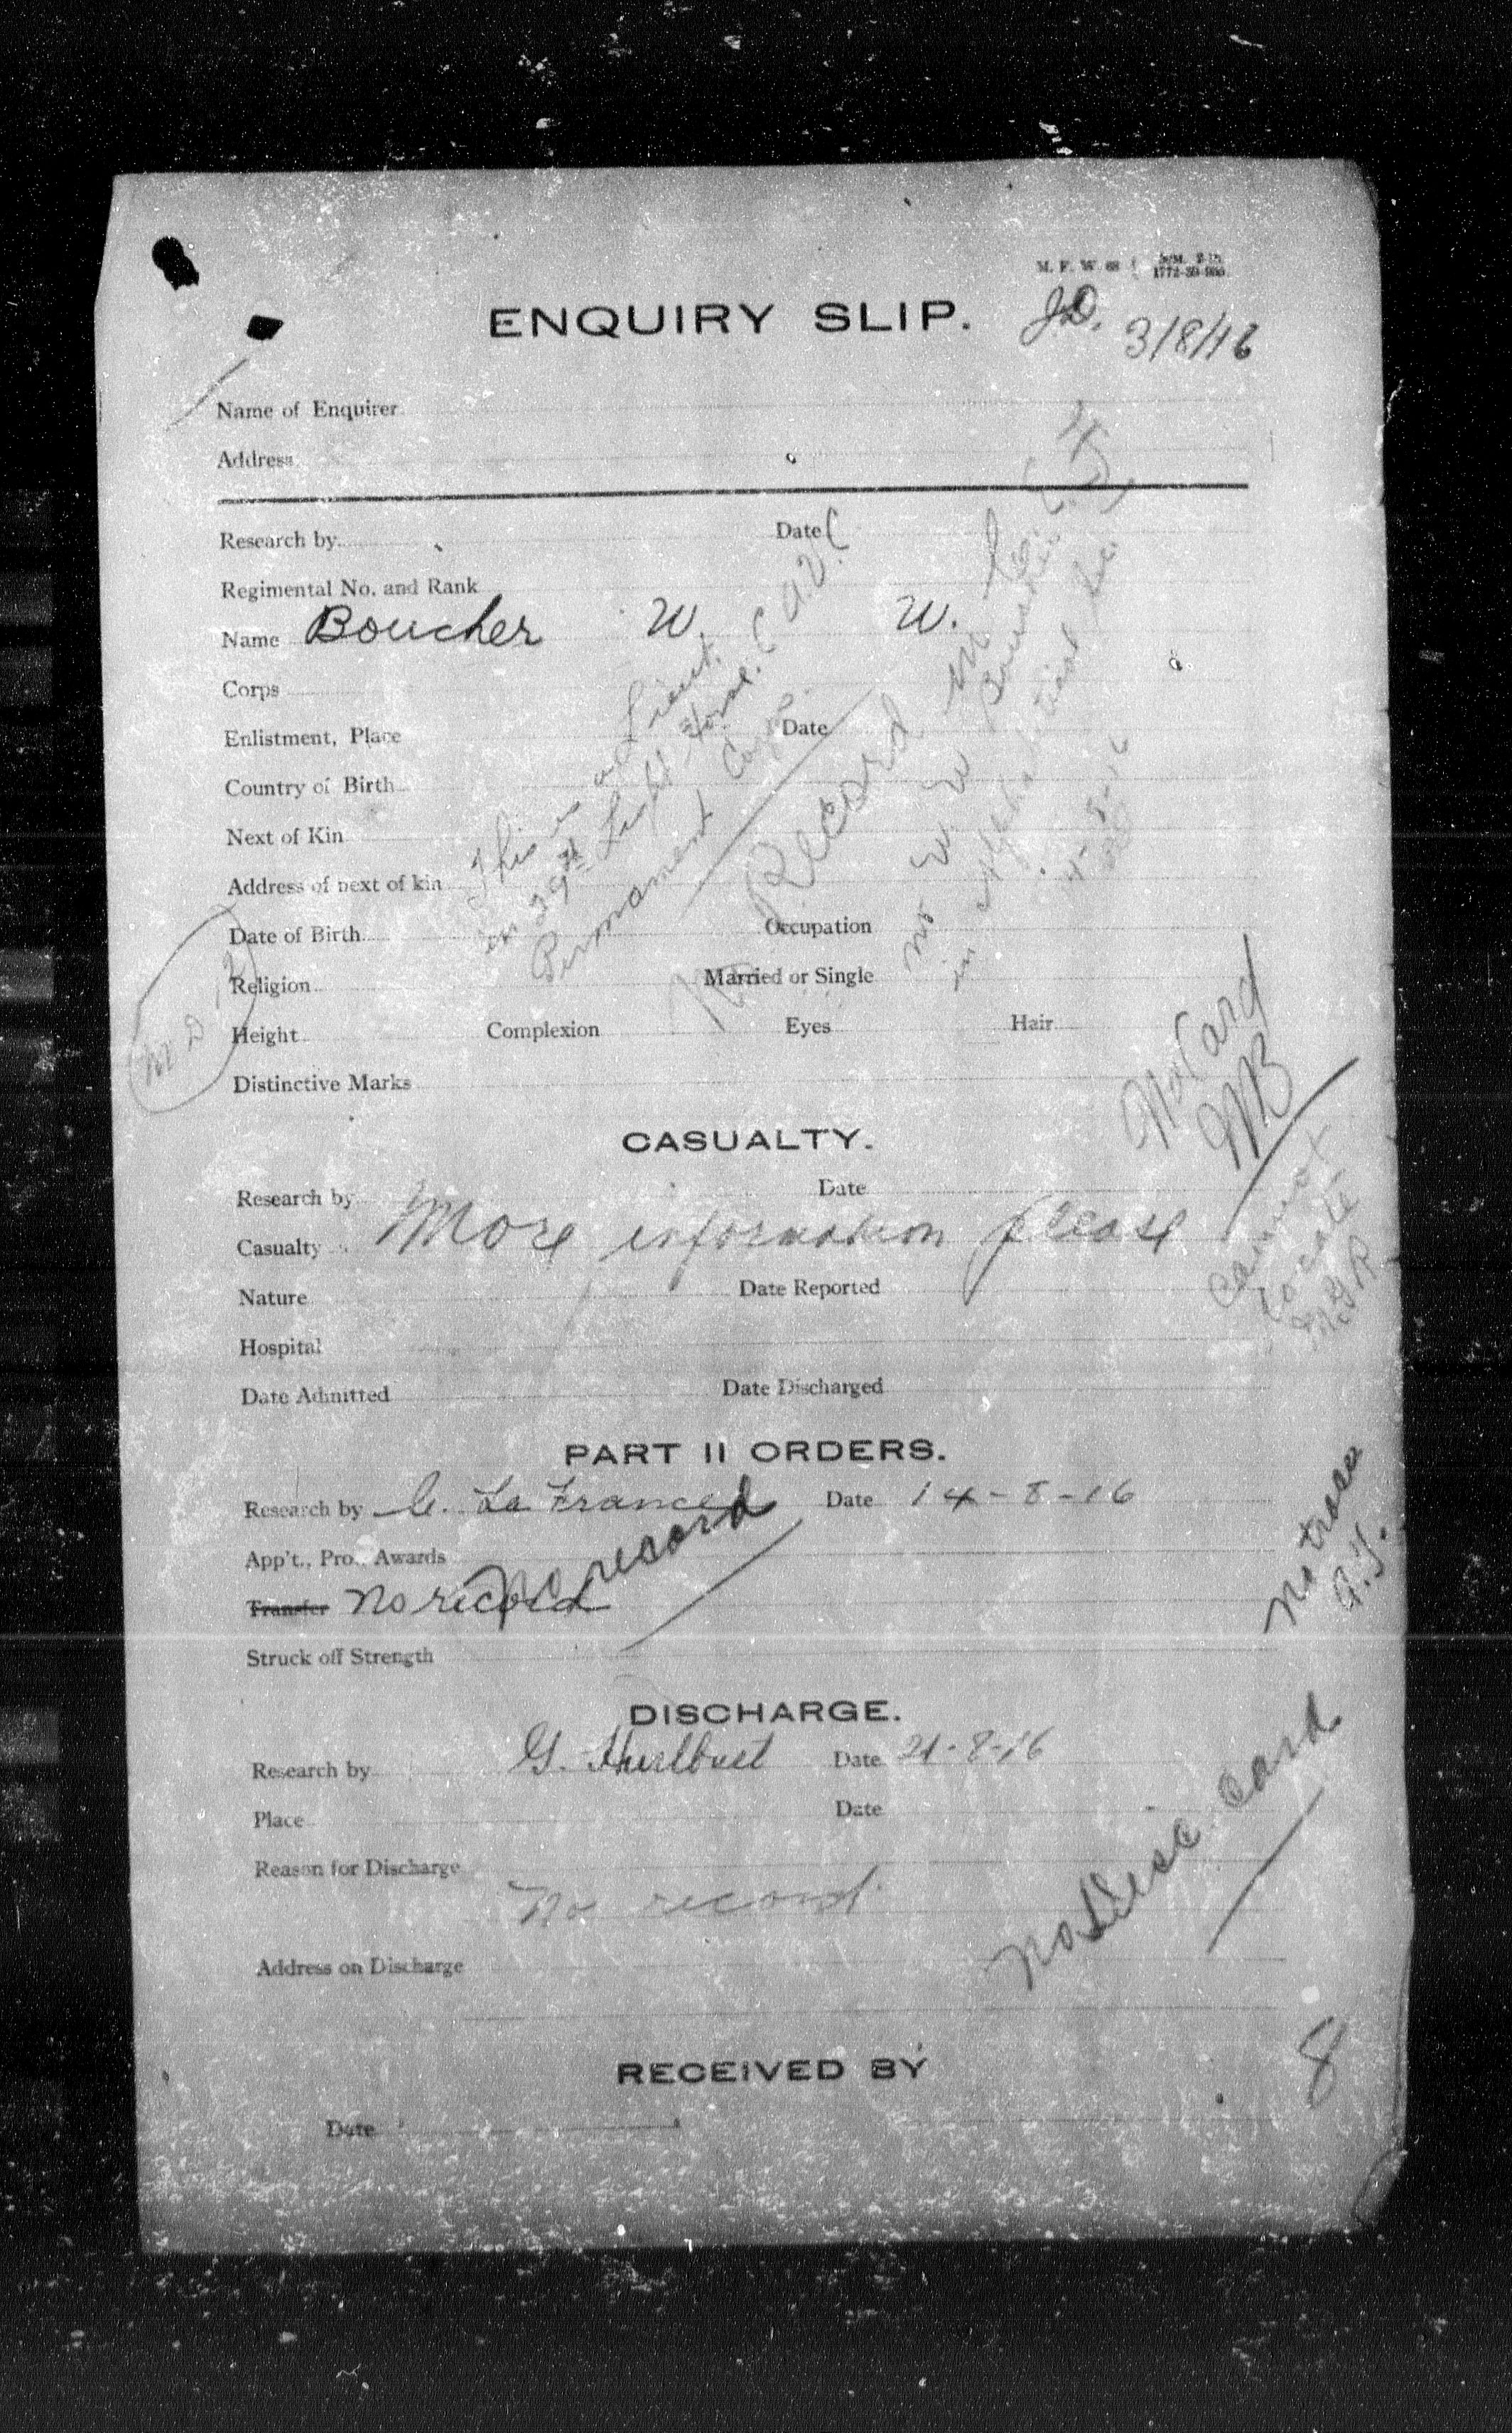 M. F. W. 68
1772-39-930.
ENQUIRY SLIP.
J.D. 3/8/16
Name of Enquirer
Address
Research by Date
Regimental No. and Rank
Name Boucher W. W.
Corps
Enlistment, Place Date
Country of Birth
Next of Kin
Address of next of kin
Date of Birth Occupation
Religion Married or Single
Height Complexion Eyes Hair
Distinctive Marks
This is a Lieut.
in 29th Light Horse.
Permanent Corps.
(A.V.C
No Record
no W. W. Boucher
in alphabetical
4-8-16
M D 12
No Card
MB
Cannot
locate
CASUALTY.
Research by Date
Casualty More information please
Nature Date Reported
Hospital
Date Admitted Date Discharged
PART II ORDERS.
Research by C. La France Date 14-8-16
App't., Pro., Awards
Transfer No record
no record
Struck off Strength
no trace
DISCHARGE.
Research by G. Hurlbut Date 21-8-16
Place Date
Reason for Discharge
No record
No Disc card
Address on Discharge
8
RECEIVED BY
Date